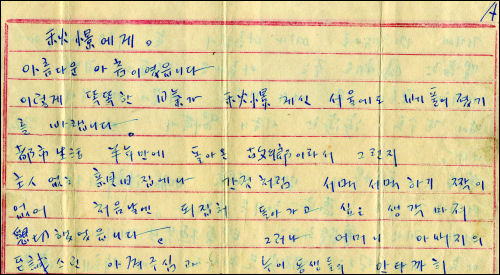 A
秋爆에게。
아름다운 아츰이였읍니다
이렇게 뚝뚝한 日氣가 秋爆 계신 서울에도 베풀어졌기
를 바랍니다。
都市生活 半年만에 돌아온 故鄕이라서 그런지
主人 없는 집에나 간것처럼 서먹서먹하기 짝이
없어 처음날엔 되집혀 돌아가고 싶은 생각마저
懇切했었읍니다。 그러나 어머니 아버지의
스런 아껴주심과 동생들의 안타까히